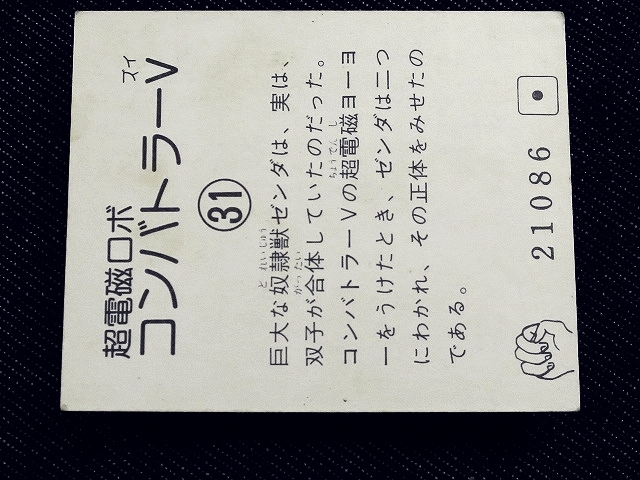 超電磁ロボ
コンバトラーV
ズイ
31
巨大な奴隷獣ゼンダは、実は、
双子が合体していたのだった。
コンバトラーVの超電磁ヨーヨ
ーをうけたとき、ゼンダは二つ
にわかれ、その正体をみせたの
である。
21086